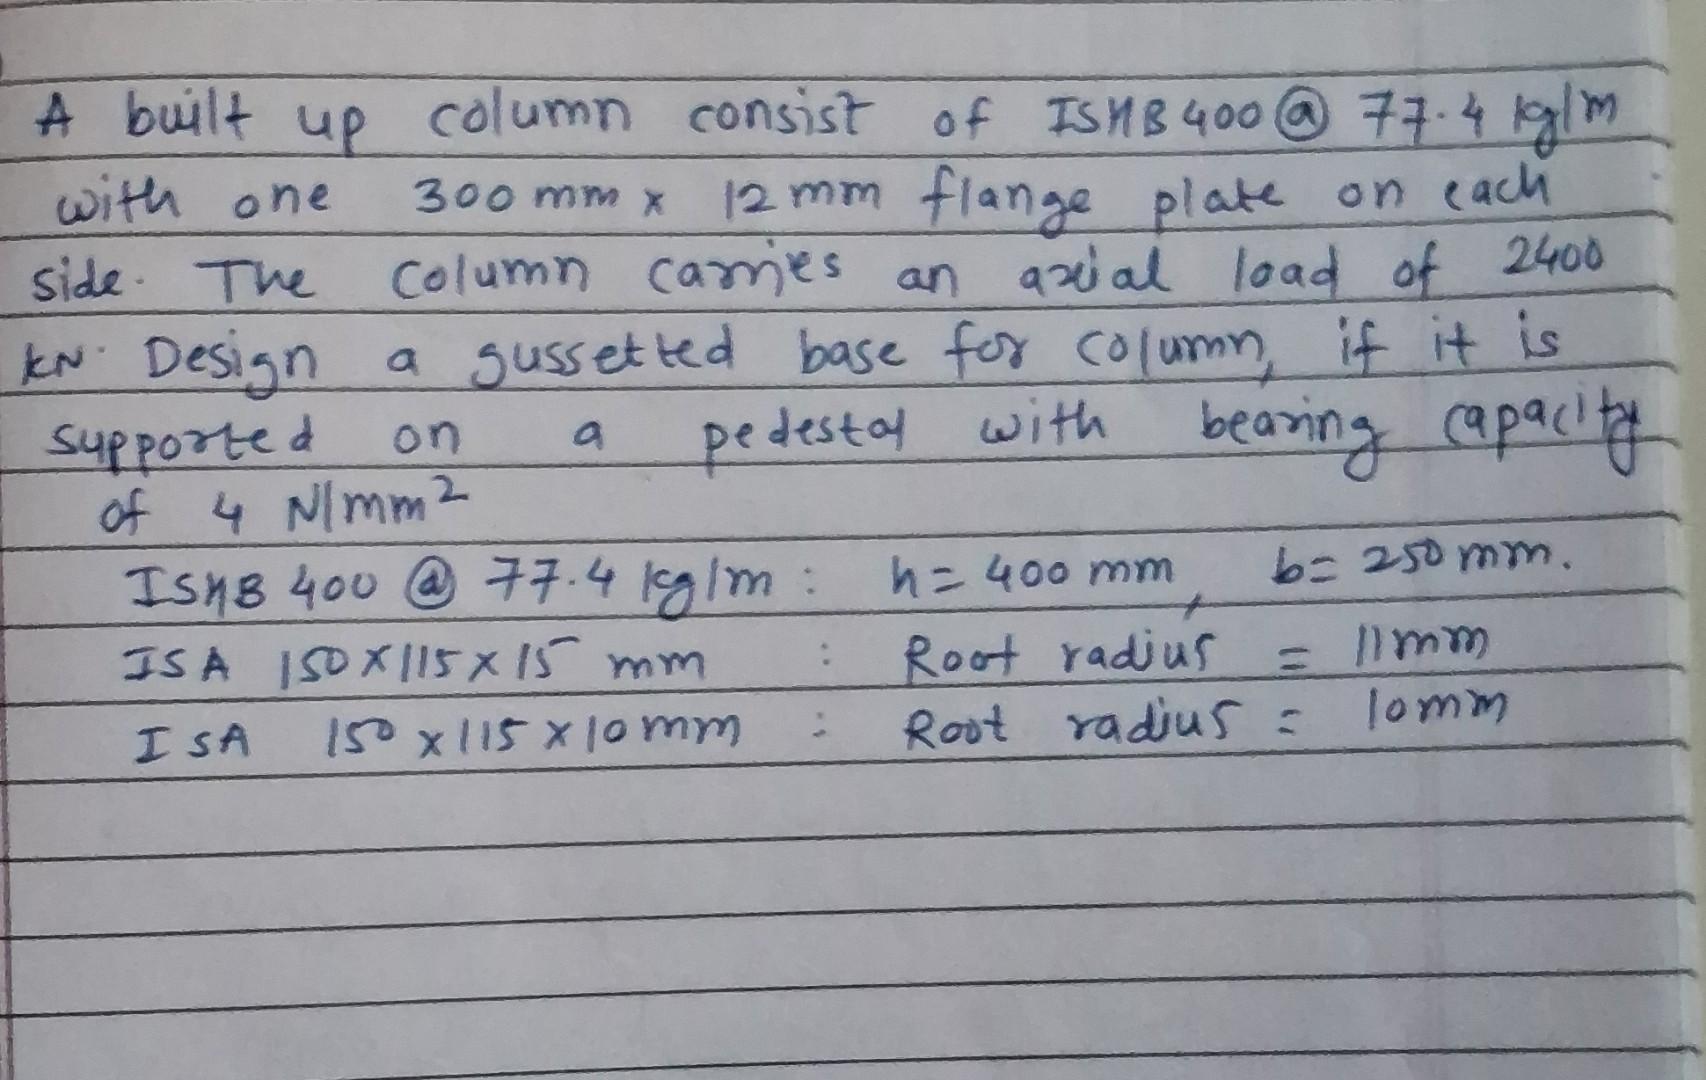 A built up column consist of ISHB 400 @ 77.4 kg/m
with one 300 mm x 12 mm flange plate on each
side. The column carries an axial load of 2400
kN. Design a gussetted base for column, if it is
supported on a pedestal with bearing capacity
of 4 N/mm²
ISHB 400 @ 77.4 kg/m : h = 400 mm, b = 250 mm.
ISA 150 x 115 x 15 mm : Root radius = 11 mm
ISA 150 x 115 x 10 mm : Root radius = 10 mm